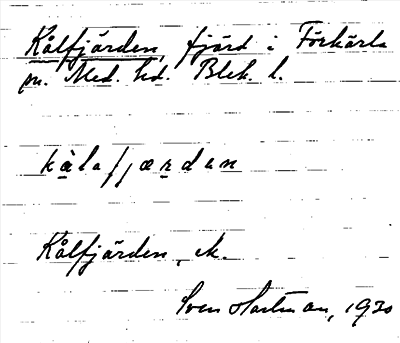 Kålfjärden, fjärd i Förkärla
sn. Med. hd. Blek. l.
kålafjærdan
Kålfjärden, ek.
Sven Hartman, 1930